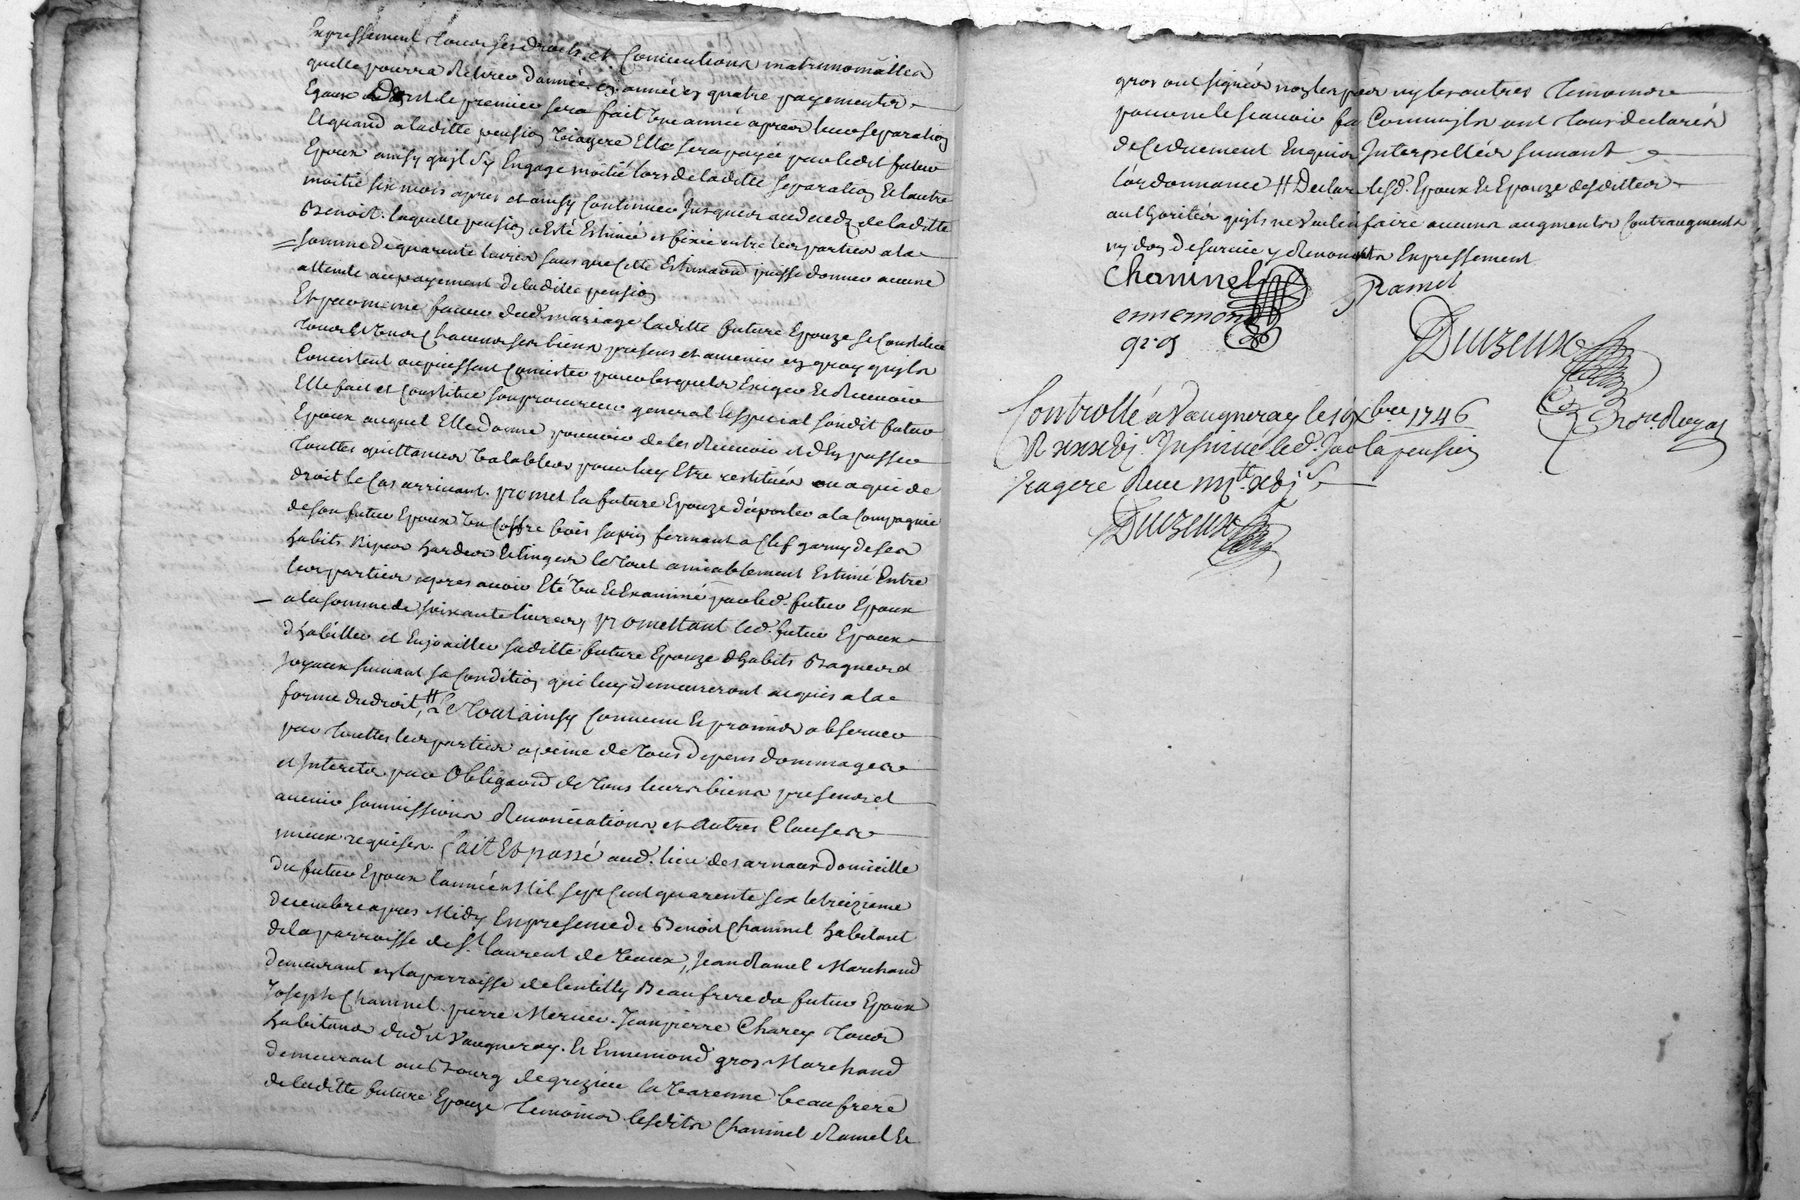 Expressement tous ses droits et Conventions matrimonialles
quelle pourra Retirer dannée en année en quatre payements
Egaux dont le premier sera fait une année apres leur separation
Et quand a laditte pension viagere Elle sera payée par ledit futur
Epoux ainsy quil sy Engage moitié lors de laditte separation Et lautre
moitié six mois apres et ainsy Continuer jusques au deces de laditte
Benoist. laquelle pension a Eté Estimée et fixée entre les parties a la
somme de quarente livres sans que Cette Estimaon puisse donner aucune
attente au payement de laditte pension
Et par meme faveur dud. mariage laditte future Epouze se Constitue
tous Et uns Chacuns ses biens presens et avenir en quoy quils
Consistent ou puissent Consister pour lesquels Exiger Et Recevoir
Elle fait et Constitue son procureur general Et special sondit futur
Epoux auquel Elle donne pouvoir de les Recevoir et dEn passer
touttes quittances valables pour luy Etre restituées ou a qui de
droit le Cas arrivant. promet la future Epouze daporter a la Compagnie
de son futur Epoux un Coffre bois sapin fermant a Clef garny de ses
habits Nipes hardes Et linges le tout amiablement Estimé Entre
les parties apres avoir Eté vu Et Examiné par led. futur Epoux
a la somme de soixante livres, promettant led. futur Epoux
dhabiller et Enjoailler saditte future Epouze dhabits Bagues et
Joyaux suivant sa Condition qui luy demeureront acquis a la
forme du droit, # Le tout ainsy Convenu Et promis observer
par touttes les parties a peine de tous depens dommages
et Interets par Obligaon de tous leurs biens presens et
avenir soumissions Renonciations et Autres Clauses
mieux requises. fait Et passé aud. lieu des arnaux domicille
du futur Epoux lan mil sept Cent quarente six le treizieme
decembre apres Midy En presence de Benoit Chaninel habitant
de la parroisse de St. laurent de vaux, Jean Ramel Marchand
demeurant en la parroisse de lentilly Beaufrere du futur Epoux
Joseph Chaninel. pierre Mercier. Jeanpierre Charey tous
habitans dudit Vaugneray. Et Ennemond gros Marchand
demeurant au Bourg de grezieu la varenne beaufrere
de laditte future Epouze temoins lesdits Chaninel Ramel Et
gros ont signés non les parties ny les autres temoins
pour ne le scavoir fe Comme ils ont tous declarés
de Ce duement Enquis Interpellés suivant
l'ordonnance # Declar. lesd. Epoux Et Epouze desdittes
authorités quils ne veulent faire aucuns augments Contraugments
ny don de survie y Renoncent Expressement
Chaninel Ramel
ennemond
gros
Duvzeux
Nore. Royal
Controllé a Vaugneray le 19 xbre 1746
R xxxvj s. Insinué led. Jour la pension
viagere Receu mj tt xvj s
Duvzeux